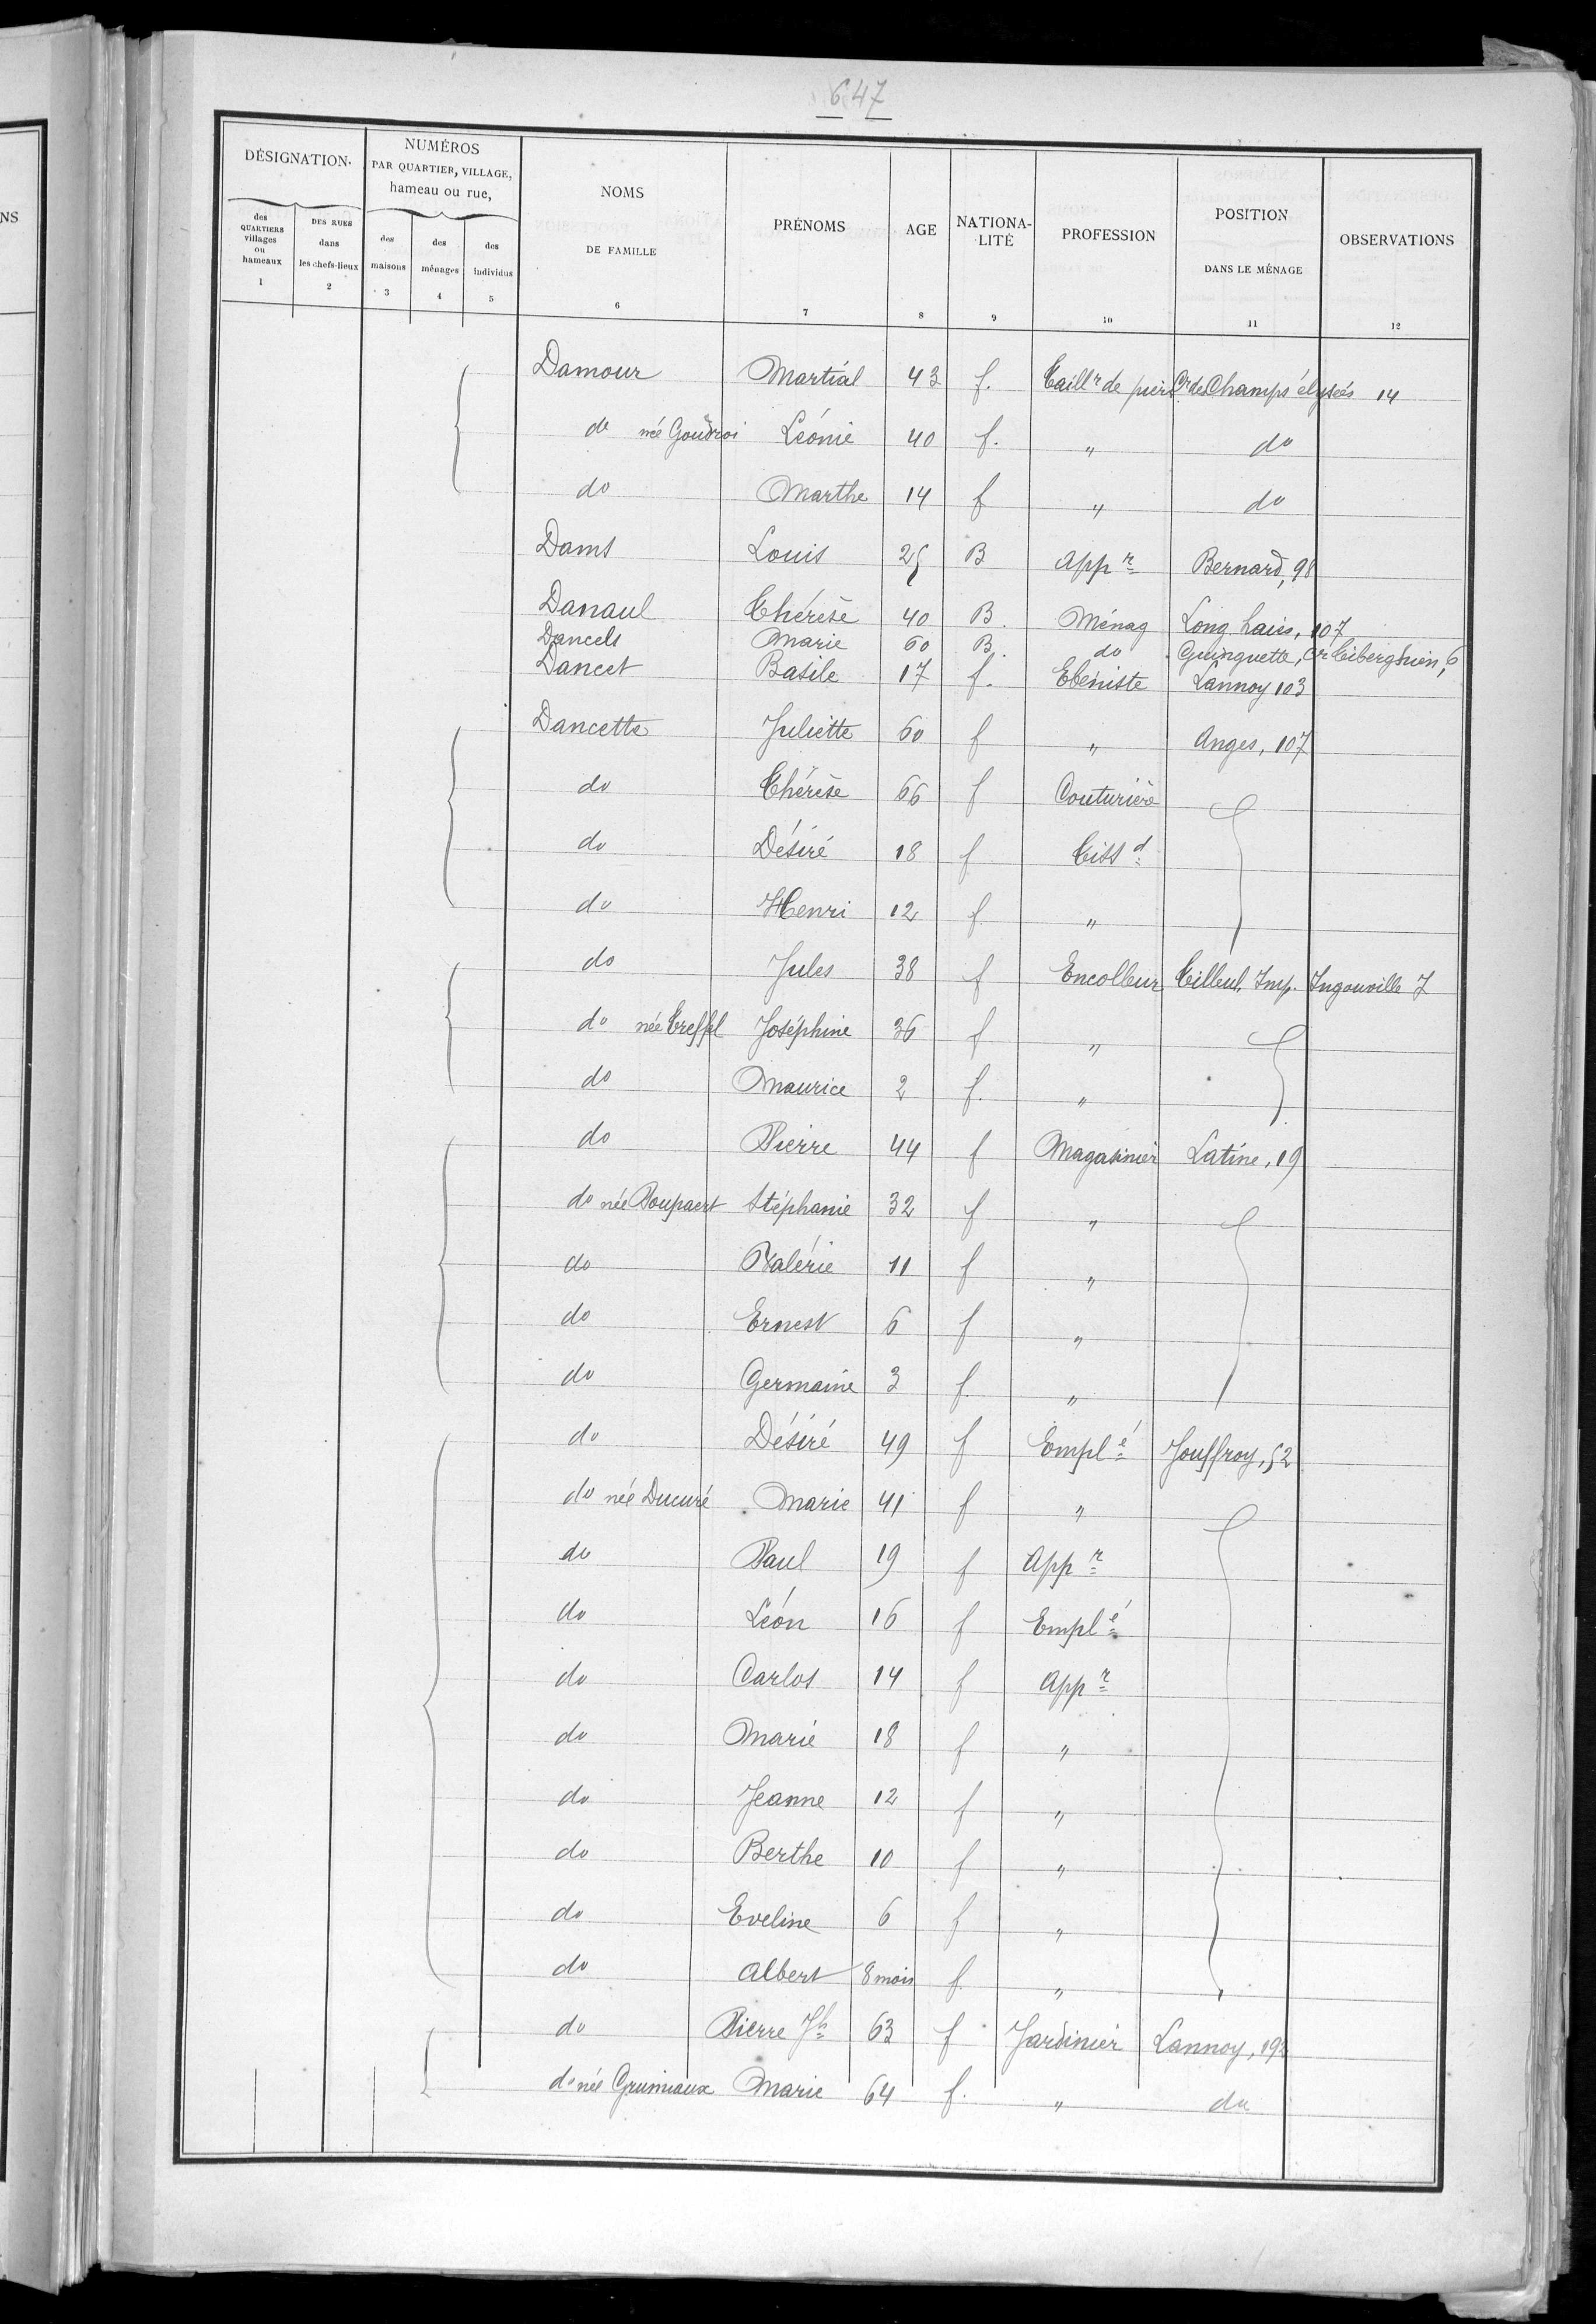 647
NS
DÉSIGNATION
NUMÉROS PAR QUARTIER, VILLAGE, hameau ou rue,
des QUARTIERS villages ou hameaux 1
DES RUES dans les chefs-lieux 2
des maisons 3
des ménages 4
des individus 5
NOMS DE FAMILLE 6
PRÉNOMS 7
AGE 8
NATIONALITÉ 9
PROFESSION 10
POSITION DANS LE MÉNAGE 11
OBSERVATIONS 12
Damour Martial 43 f. Taillr de pier Cr des Champs élysées 14
do née Goudroi Léonie 40 f. " do
do Marthe 14 f " do
Dams Louis 25 B Appr Bernard, 98
Danaul Thérèse 40 B. Ménag Long. haies, 107
Dancels Marie 60 B. do Guinguette, Cr Tiberghien, 6
Dancet Basile 17 f. Ebéniste Lannoy 103
Dancette Juliette 60 f " Anges, 107
do Thérèse 66 f Couturière
do Désiré 18 f Tissd
do Henri 12 f "
do Jules 38 f Encolleur Tilleul, Imp. Ingouville 7
do née Treffel Joséphine 36 f "
do Maurice 2 f. "
do Pierre 44 f Magasinier Latine, 19
do née Poupaert Stéphanie 32 f "
do Valérie 11 f "
do Ernest 6 f "
do Germaine 3 f. "
do Désiré 49 f Emplé Jouffroy, 52
do née Ducuré Marie 41 f "
do Paul 19 f Appr
do Léon 16 f Emplé
do Carlos 14 f Appr
do Marie 18 f "
do Jeanne 12 f "
do Berthe 10 f "
do Eveline 6 f "
do Albert 8 mois f. "
do Pierre Jh 63 f Jardinier Lannoy, 192
do née Grumiaux Marie 64 f. " do